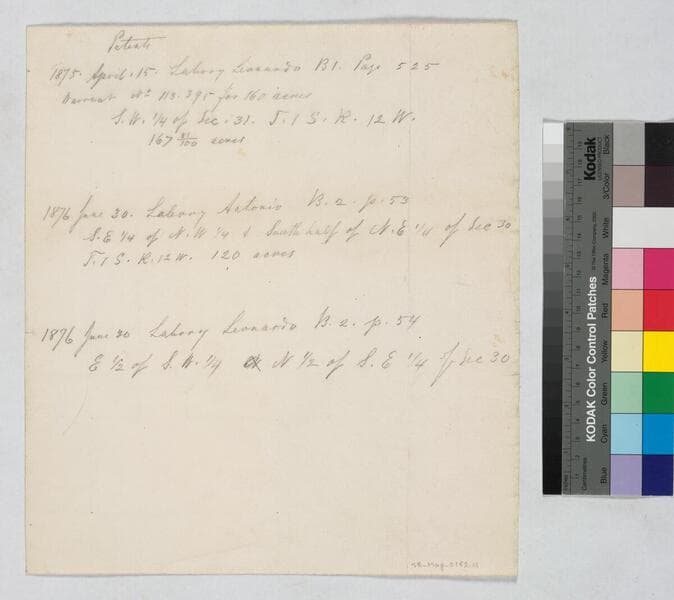 Patents
1875. April. 15. Labory Leonardo B 1. Page 525
Warrant No 113.395 for 160 acres
S. W. 1/4 of Sec. 31. T. 1 S. R. 12 W.
167 81/100 acres
1876 June 30. Labory Antonio B. 2. p. 53
S. E 1/4 of N. W 1/4 & South half of N. E 1/4 of Sec 30
T. 1 S. R. 12 W. 120 acres
1876 June 30 Labory Leonardo B. 2. p. 54
E 1/2 of S. W. 1/4 N 1/2 of S. E 1/4 of Sec 30
KODAK Color Control Patches
Kodak
Blue Cyan Green Yellow Red Magenta White 3/Color Black
Inches
Centimetres